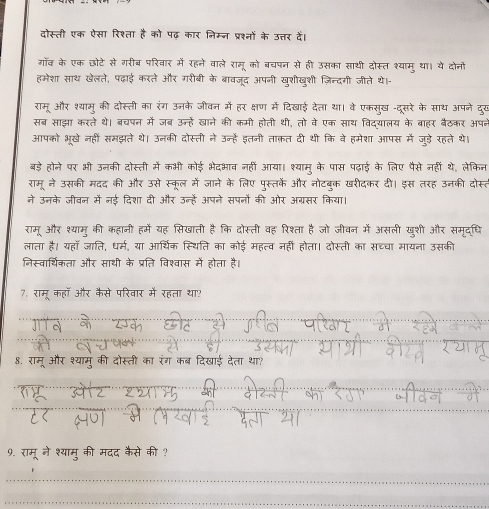 दोस्ती एक ऐसा रिश्ता है को पढ़ कार निम्न प्रश्नों के उत्तर दें।
गाँव के एक छोटे से गरीब परिवार में रहने वाले रामू को बचपन से ही उसका साथी दोस्त श्यामु था। ये दोनों
हमेशा साथ खेलते, पढ़ाई करते और गरीबी के बावजूद अपनी खुशीखुशी जिन्दगी जीते थे।-
रामू और श्यामु की दोस्ती का रंग उनके जीवन में हर क्षण में दिखाई देता था। वे एकसुख -दूसरे के साथ अपने
सब साझा करते थे। बचपन में जब उन्हें खाने की कमी होती थी, तो वे एक साथ विद्यालय के बाहर बैठकर
आपको भूखे नहीं समझते थे। उनकी दोस्ती ने उन्हें इतनी ताकत दी थी कि वे हमेशा आपस में जुड़े रहते थे।
बड़े होने पर भी उनकी दोस्ती में कभी कोई भेदभाव नहीं आया। श्यामु के पास पढ़ाई के लिए पैसे नहीं थे, लेकिन
रामू ने उसकी मदद की और उसे स्कूल में जाने के लिए पुस्तकें और नोटबुक खरीदकर दी। इस तरह उनकी
ने उनके जीवन में नई दिशा दी और उन्हें अपने सपनों की ओर अग्रसर किया।
रामू और श्यामु की कहानी हमें यह सिखाती है कि दोस्ती वह रिश्ता है जो जीवन में असली खुशी और समृद्धि
लाता है। यहाँ जाति, धर्म, या आर्थिक स्थिति का कोई महत्व नहीं होता। दोस्ती का सच्चा मायना उसकी
निस्वार्थिकता और साथी के प्रति विश्वास में होता है।
7. रामू कहाँ और कैसे परिवार में रहता था?
गाव के एक छोटे से गरीब परिवार मे रहने
को बचपन से ही उसका साथी दोस्त श्यामु
8. रामू और श्यामु की दोस्ती का रंग कब दिखाई देता था?
रामू और श्यामु की दोस्ती का रंग जीवन में
हर क्षण मे दिखाई देता था
9. रामू ने श्यामु की मदद कैसे की ?